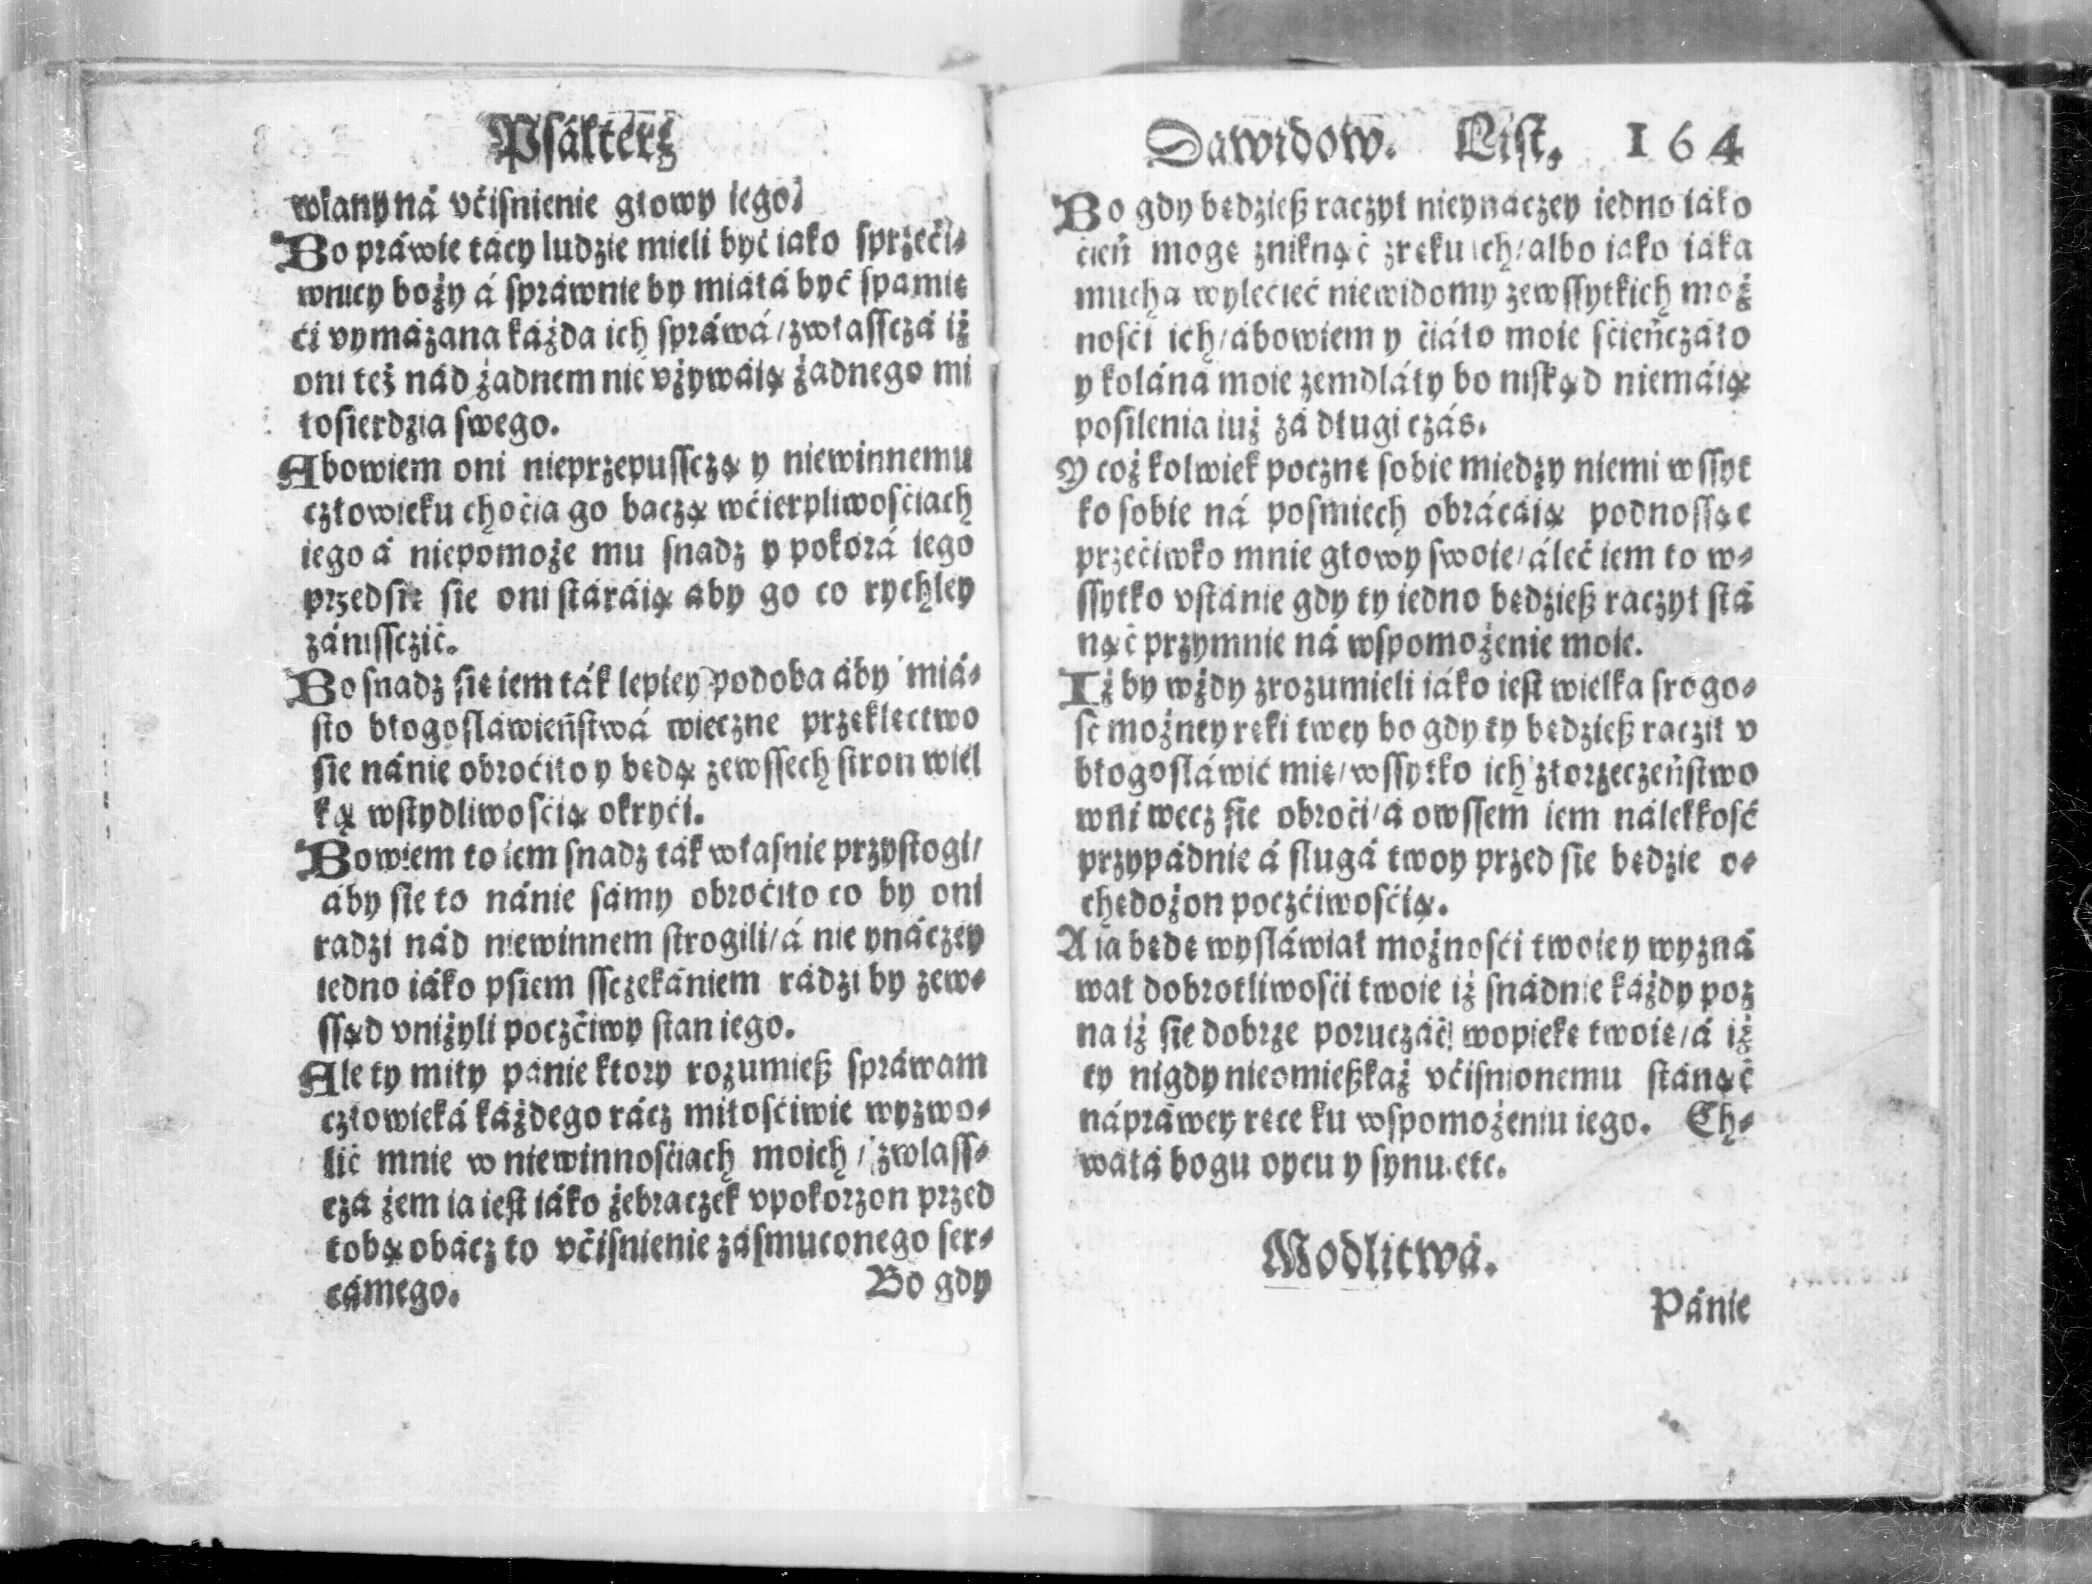 Psałterz
włany ná vćiſnienie głowy iego.
Bo práwie tácy ludzie mieli być iako ſprzeći⸗
wnicy boży á ſpráwnie by miáłá być ſpamię
ći vymázana káżda ich ſpráwá/ zwłaſſczá iż
oni też nád żadnem nie vżywáią żadnego mi
łoſierdzia ſwego.
Abowiem oni nieprzepuſſczą y niewinnemu
człowieku choćia go baczą wćierpliwośćiach
iego á niepomoże mu ſnadz y pokorá iego
przedſię ſie oni ſtáráią aby go co rychley
zániſſczić.
Bo ſnadz ſię iem ták lepiey podoba áby miá⸗
ſto błogoſláwieńſtwá wieczne przeklęctwo
ſie nánie obroćiło y będą zewſſech ſtron wiel
ką wſtydliwośćią okryći.
Bowiem to iem ſnadz ták właſnie przyſłogi/
áby ſie to nánie ſámy obroćiło co by oni
radzi nád niewinnem ſtrogili/ á nie ynáczey
iedno iáko pſiem ſſczekániem rádzi by zew⸗
ſſąd vniżyli poczćiwy ſtan iego.
Ale ty miły panie ktory rozumieß ſpráwam
człowieká káżdego rácz miłośćiwie wyzwo⸗
lić mnie w niewinnośćiach moich/ zwlaſſ⸗
czá żem ia ieſt iáko żebraczek vpokorzon przed
tobą obácz to vćiſnienie záſmuconego ſer⸗
cámego.
Bo gdy
Dawidow. Liſt. 164
Bo gdy będzieß raczył nieynáczey iedno iáko
ćień mogę zniknąć zręku ich/ albo iako iáka
mucha wylećieć niewidomy zewſſytkich moż
nośći ich/ ábowiem y ćiáło moie śćieńczáło
y kolána moie zemdláły bo niſkąd niemáią
poſilenia iuż zá długi czás.
Y coż kolwiek pocznę ſobie miedzy niemi wſſyt
ko ſobie ná poſmiech obrácáią podnoſſąc
przećiwko mnie głowy ſwoie/ áleć iem to w⸗
ſſytko vſtánie gdy ty iedno będzieß raczył ſtá
nąć przymnie ná wſpomożenie moie.
Iż by wżdy zrozumieli iáko ieſt wielka ſrogo⸗
ść możney ręki twey bo gdy ty będzieß racził v
błogoſláwić mię/ wſſytko ich złorzeczeńſtwo
wni wecz ſie obroći/ á owſſem iem nálekkość
przypádnie á ſlugá twoy przed ſie będzie o⸗
chędożon poczćiwośćią.
A ia będę wyſláwiał możnośći twoie y wyzná
wał dobrotliwośći twoie iż ſnádnie káżdy poz
na iż ſie dobrze poruczáć wopiekę twoię/ á iż
ty nigdy nieomießkaż vćiſnionemu ſtánąć
nápráwey ręce ku wſpomożeniu iego. Ch⸗
wałá bogu oycu y synu. etc.
Modlitwá.
Pánie